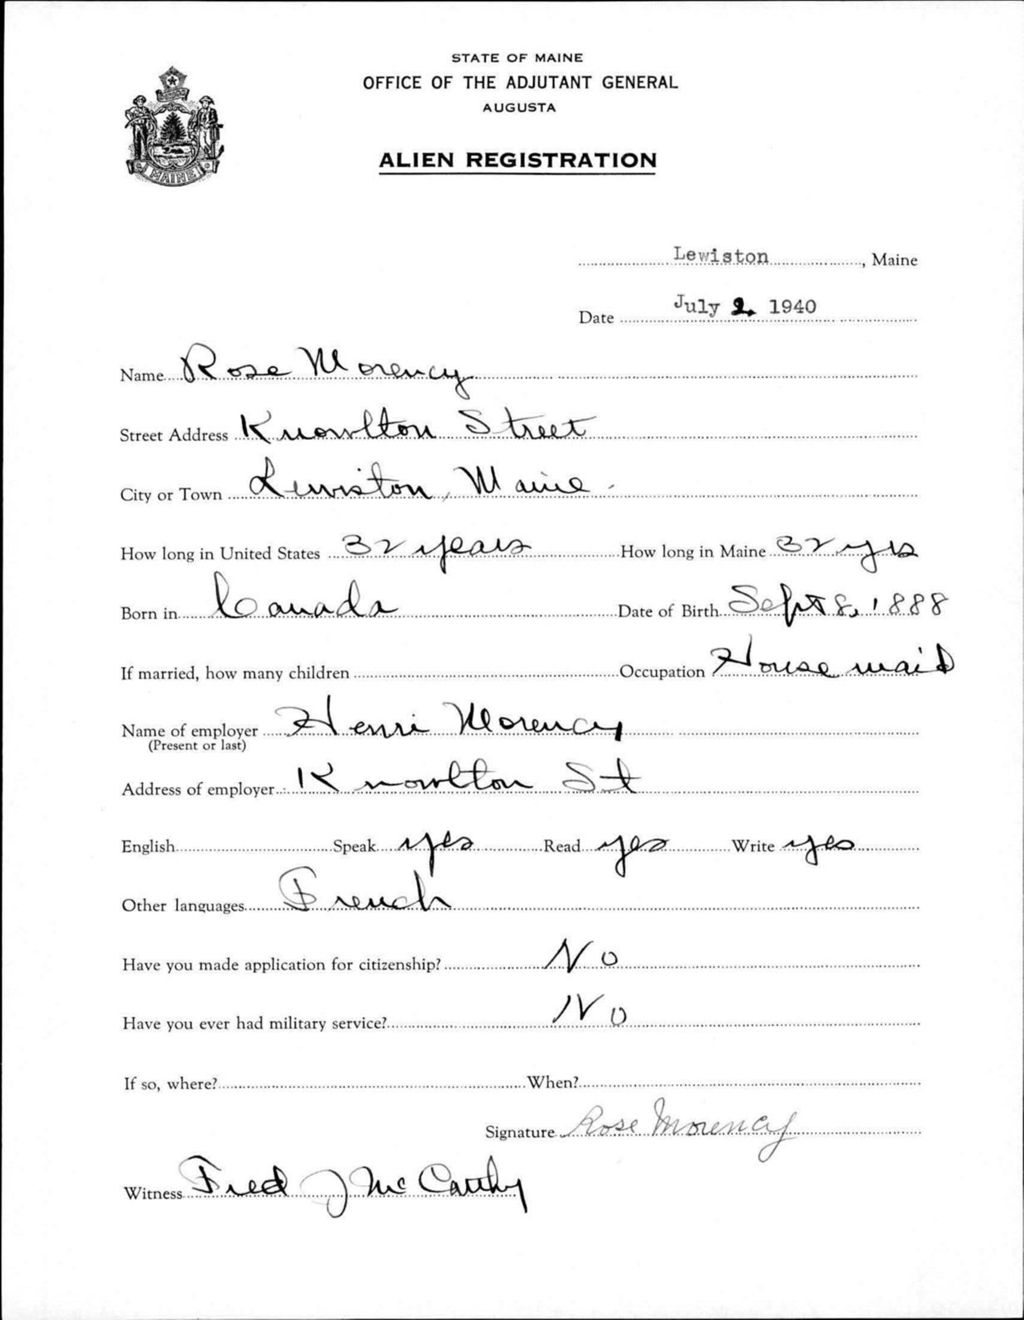 STATE OF MAINE
OFFICE OF THE ADJUTANT GENERAL
AUGUSTA
ALIEN REGISTRATION
MAINE
Lewiston, Maine
Date July 2, 1940
Name Rose Morency
Street Address Knowlton Street
City or Town Lewiston, Maine
How long in United States 32 years How long in Maine 32 yrs
Born in Canada Date of Birth Sept 8, 1888
If married, how many children Occupation House maid
Name of employer Henri Morency
(Present or last)
Address of employer Knowlton St
English Speak yes Read yes Write yes
Other languages French
Have you made application for citizenship? No
Have you ever had military service? No
If so, where? When?
Signature Rose Morency
Witness Fred J McCarthy